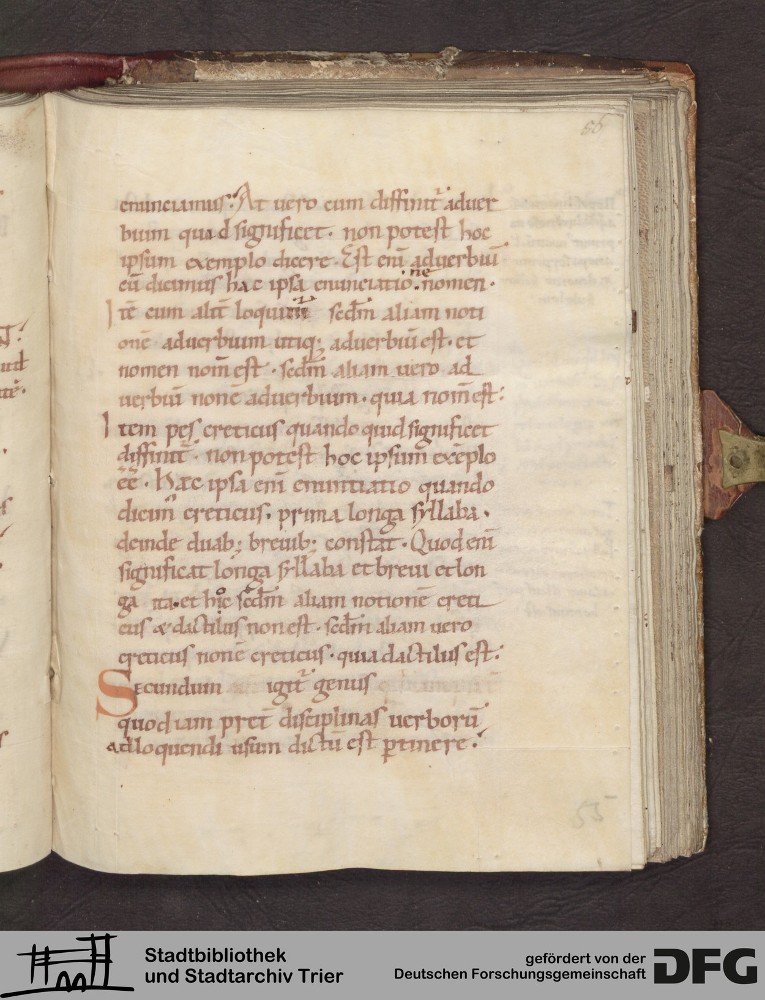 55
enunciamus. At uero cum diffinit̄ aduer
bium quid significet. non potest hoc
ipsum exemplo dicere. Est enī aduerbiū
cū dicimus hæc ipsa enunciatio ne nomen.
Itē cum alit̄ loquimur secdm̄ aliam noti
onē aduerbium utiq; aduerbiū est. et
nomen nom̄ est. secdm̄ aliam uero ad
uerbiū non ē aduerbium. quia nom̄ est:
Item pes creticus quando quid significet
diffinit̄. non potest hoc ipsum exēplo
ēē. Hæc ipsa enī enuntiatio quando
dicim̄ creticus. prima longa syllaba.
deinde duab; breuib; constat. Quod enī
significat longa syllaba et breui et lon
ga ita et hic secdm̄ aliam notionē creti
cus & dactilus non est. secdm̄ aliam uero
creticus non ē creticus. quia dactilus est:
Secundum igit̄ genus
quod iam pret̄ disciplinas uerborū
ad loquendi usum dictū est ꝑtinere.
55
Stadtbibliothek
und Stadtarchiv Trier
gefördert von der
Deutschen Forschungsgemeinschaft
DFG